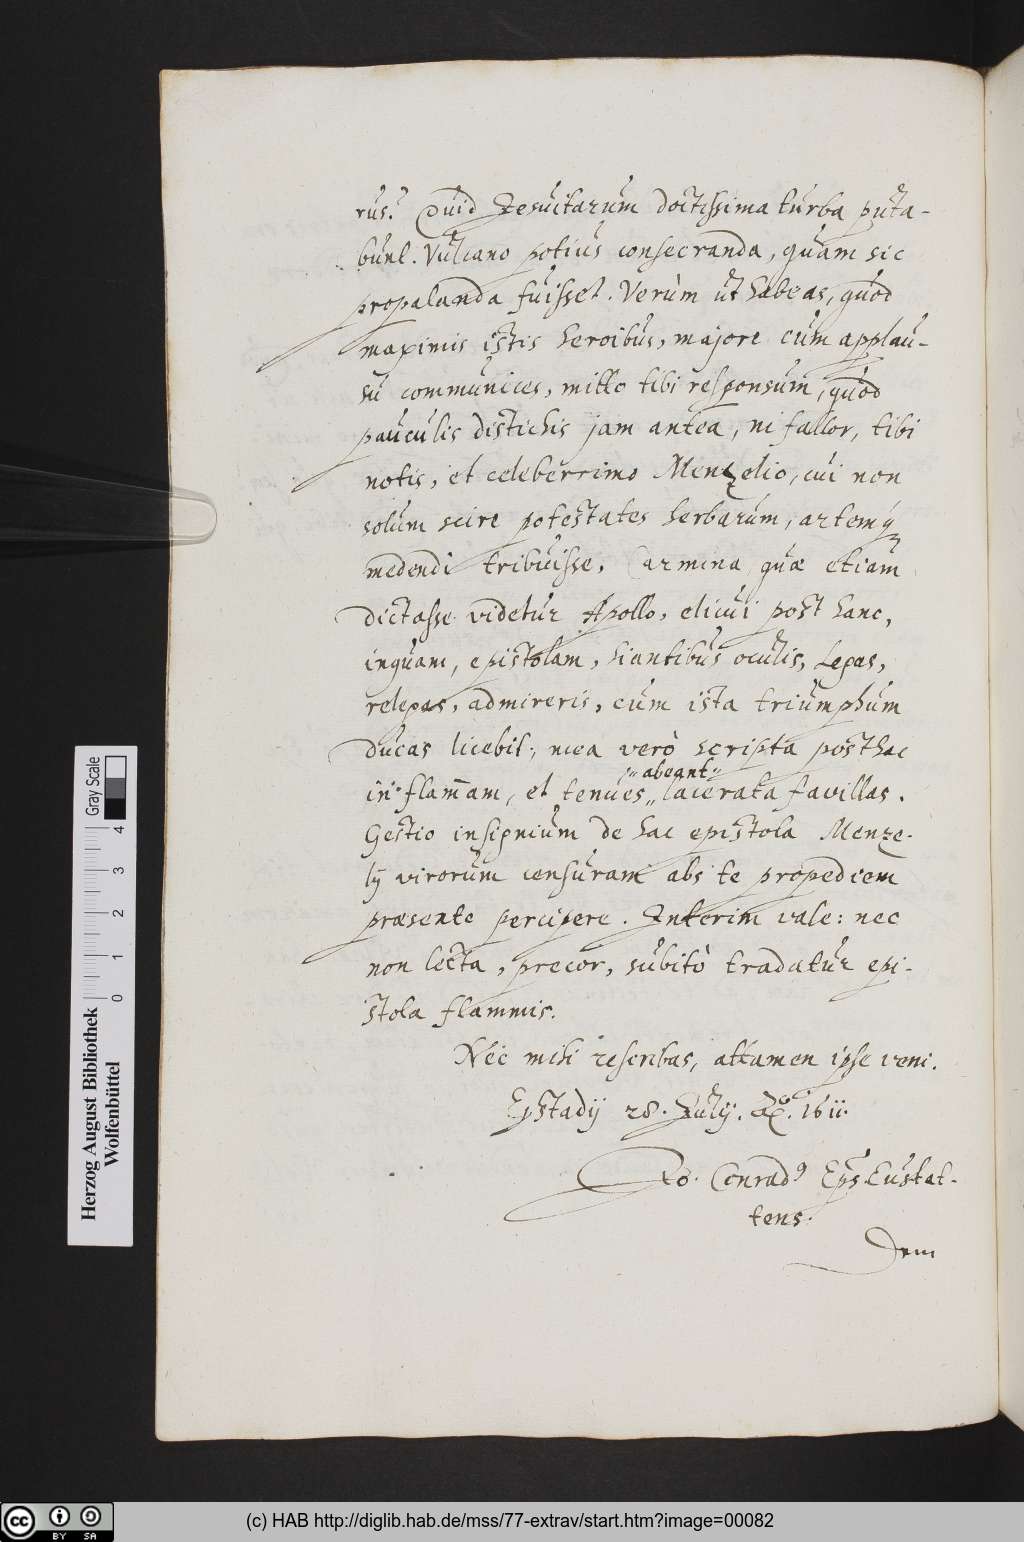 rus? Quid Jesuitarum doctissima turba puta-
bunt. Vulcano potius consecranda, quam sic
propalanda fuisset. Verùm ut habeas, quod
maximis istis heroibus, majore cum applau-
su communices, mitto tibi responsum, quod
pauculis distichis jam antea, ni fallor, tibi
notis, et celeberrimo Menzelio, cui non
solum scire potestates herbarum, artemq́
medendi tribuisse. Carmina quæ etiam
dictasse videtur Apollo, elicui post hanc,
inquam, epistolam, hiantibus oculis, Legas,
relegas, admireris, cum ista triumphum
ducas licebit; mea verò scripta posthac
„abeant„
in flam̄am, et tenues„ lacerata favillas.
Gestio insignium de hac epistola Menze-
lij virorum censuram abs te propediem
præsente percipere. Interim vale: nec
non lecta, precor, subitò tradatur epi-
stola flammis.
Nec mihi rescribas, attamen ipse veni.
Eystadij 28. Julij. Aº. 1611.
Jo. Conrad9 Eps Eustet-
tens.
Dem
Herzog August Bibliothek
Wolfenbüttel
Gray Scale
0 1 2 3 4
cc BY SA
(c) HAB http://diglib.hab.de/mss/77-extrav/start.htm?image=00082